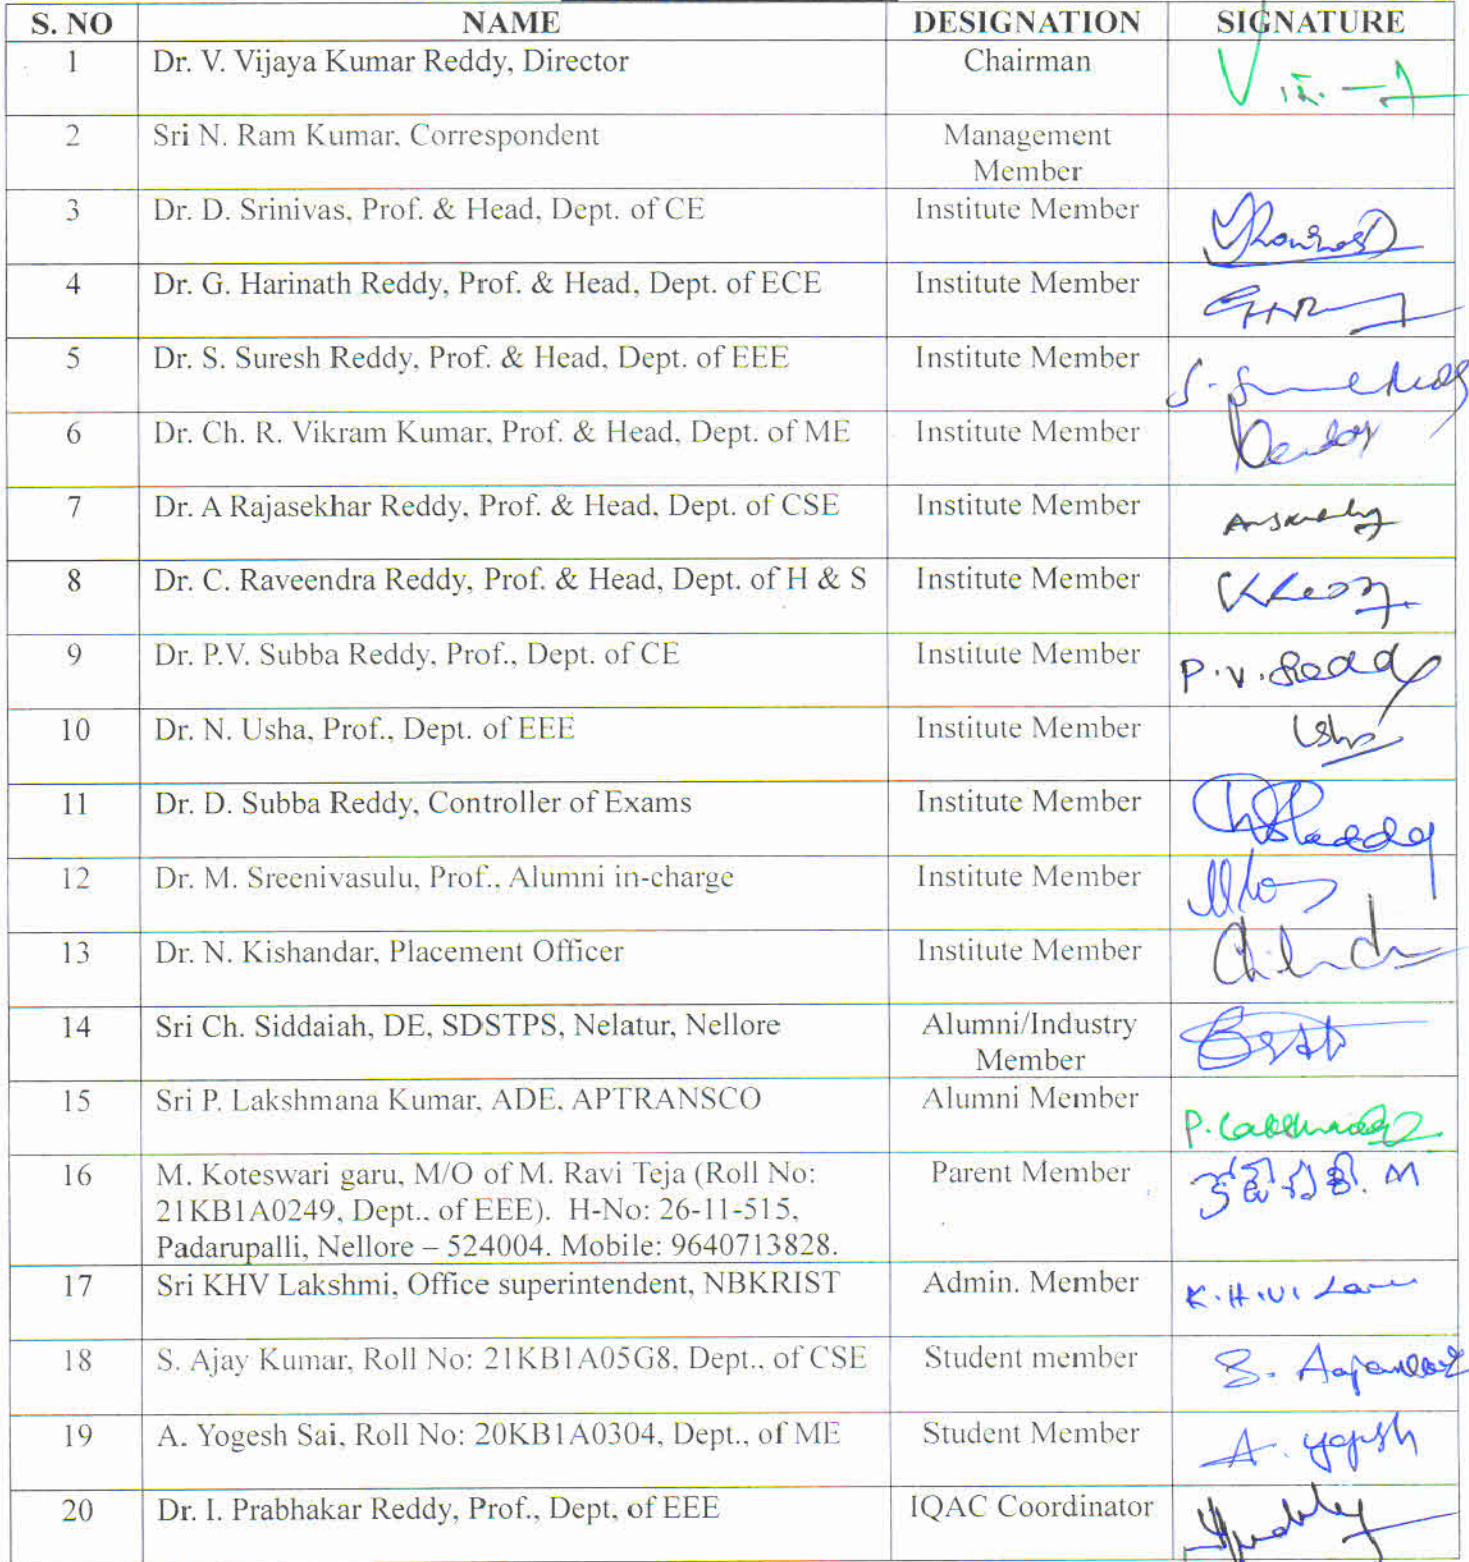 S. NO NAME DESIGNATION SIGNATURE
1 Dr. V. Vijaya Kumar Reddy, Director Chairman
2 Sri N. Ram Kumar, Correspondent Management
Member
3 Dr. D. Srinivas, Prof. & Head, Dept. of CE Institute Member
4 Dr. G. Harinath Reddy, Prof. & Head, Dept. of ECE Institute Member
5 Dr. S. Suresh Reddy, Prof. & Head, Dept. of EEE Institute Member
6 Dr. Ch. R. Vikram Kumar, Prof. & Head, Dept. of ME Institute Member
7 Dr. A Rajasekhar Reddy, Prof. & Head, Dept. of CSE Institute Member
8 Dr. C. Raveendra Reddy, Prof. & Head, Dept. of H & S Institute Member
9 Dr. P.V. Subba Reddy, Prof., Dept. of CE Institute Member P.V. Reddy
10 Dr. N. Usha, Prof., Dept. of EEE Institute Member
11 Dr. D. Subba Reddy, Controller of Exams Institute Member
12 Dr. M. Sreenivasulu, Prof., Alumni in-charge Institute Member
13 Dr. N. Kishandar, Placement Officer Institute Member
14 Sri Ch. Siddaiah, DE, SDSTPS, Nelatur, Nellore Alumni/Industry
Member
15 Sri P. Lakshmana Kumar, ADE, APTRANSCO Alumni Member
16 M. Koteswari garu, M/O of M. Ravi Teja (Roll No: Parent Member
21KB1A0249, Dept., of EEE). H-No: 26-11-515,
Padarupalli, Nellore – 524004. Mobile: 9640713828.
17 Sri KHV Lakshmi, Office superintendent, NBKRIST Admin. Member
18 S. Ajay Kumar, Roll No: 21KB1A05G8, Dept., of CSE Student member
19 A. Yogesh Sai, Roll No: 20KB1A0304, Dept., of ME Student Member A. Yogesh
20 Dr. I. Prabhakar Reddy, Prof., Dept, of EEE IQAC Coordinator